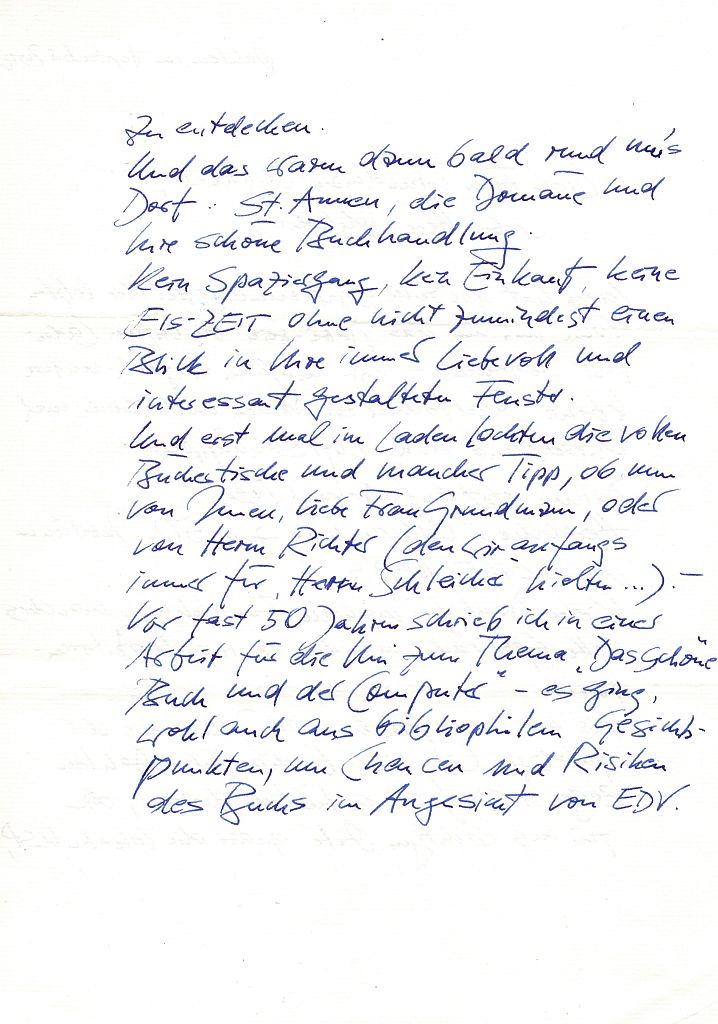 zu entdecken.
Und das waren dann bald rund um's
Dorf: St. Annen, die Domäne und
Ihre schöne Buchhandlung.
Kein Spaziergang, kein Einkauf, keine
EIS-ZEIT ohne nicht zumindest einen
Blick in Ihre immer liebevoll und
interessant gestalteten Fenster.
Und erst mal im Laden lockten die vollen
Büchertische und mancher Tipp, ob nun
von Ihnen, liebe Frau Grundmann, oder
von Herrn Richter (den wir anfangs
immer für „Herrn Schleicher" hielten...). –
Vor fast 50 Jahren schrieb ich in einer
Arbeit für die Uni zum Thema „Das schöne
Buch und der Computer" – es ging,
wohl auch aus bibliophilen Gesichts-
punkten, um Chancen und Risiken
des Buchs im Angesicht von EDV.